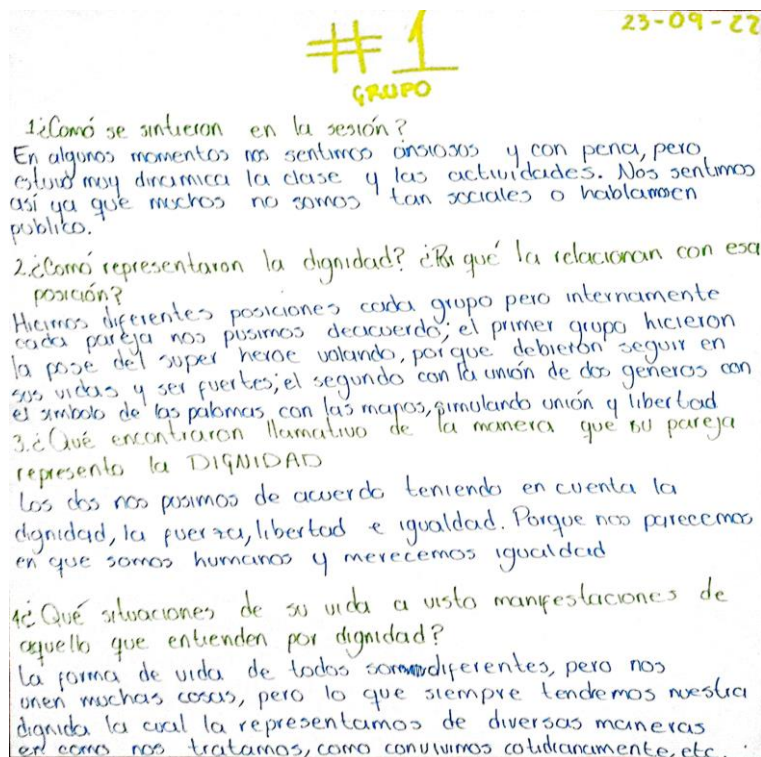 #1
23-09-22
GRUPO
1¿Comó se sintieron en la sesión?
En algunos momentos nos sentimos ansiosos y con pena, pero
estuvo muy dinamica la clase y las actividades. Nos sentimos
así ya que muchos no somos tan sociales o hablamos en
publico.
2.¿Comó representaron la dignidad? ¿Por qué la relacionan con esa
posición?
Hicimos diferentes posiciones cada grupo pero internamente
cada pareja nos pusimos deacuerdo; el primer grupo hicieron
la pose del super heroe volando, porque debieron seguir en
sus vidas y ser fuertes; el segundo con la unión de dos generos con
el simbolo de las palomas con las manos, simulando unión y libertad
3.¿Qué encontraron llamativo de la manera que su pareja
represento la DIGNIDAD
Los dos nos pusimos de acuerdo teniendo en cuenta la
dignidad, la fuerza, libertad e igualdad. Porque nos parecemos
en que somos humanos y merecemos igualdad
4¿Qué situaciones de su vida a visto manifestaciones de
aquello que entienden por dignidad?
La forma de vida de todos somos diferentes, pero nos
unen muchas cosas, pero lo que siempre tendemos nuestra
dignida la cual la representamos de diversas maneras
en como nos tratamos, como convivimos cotidianamente, etc.